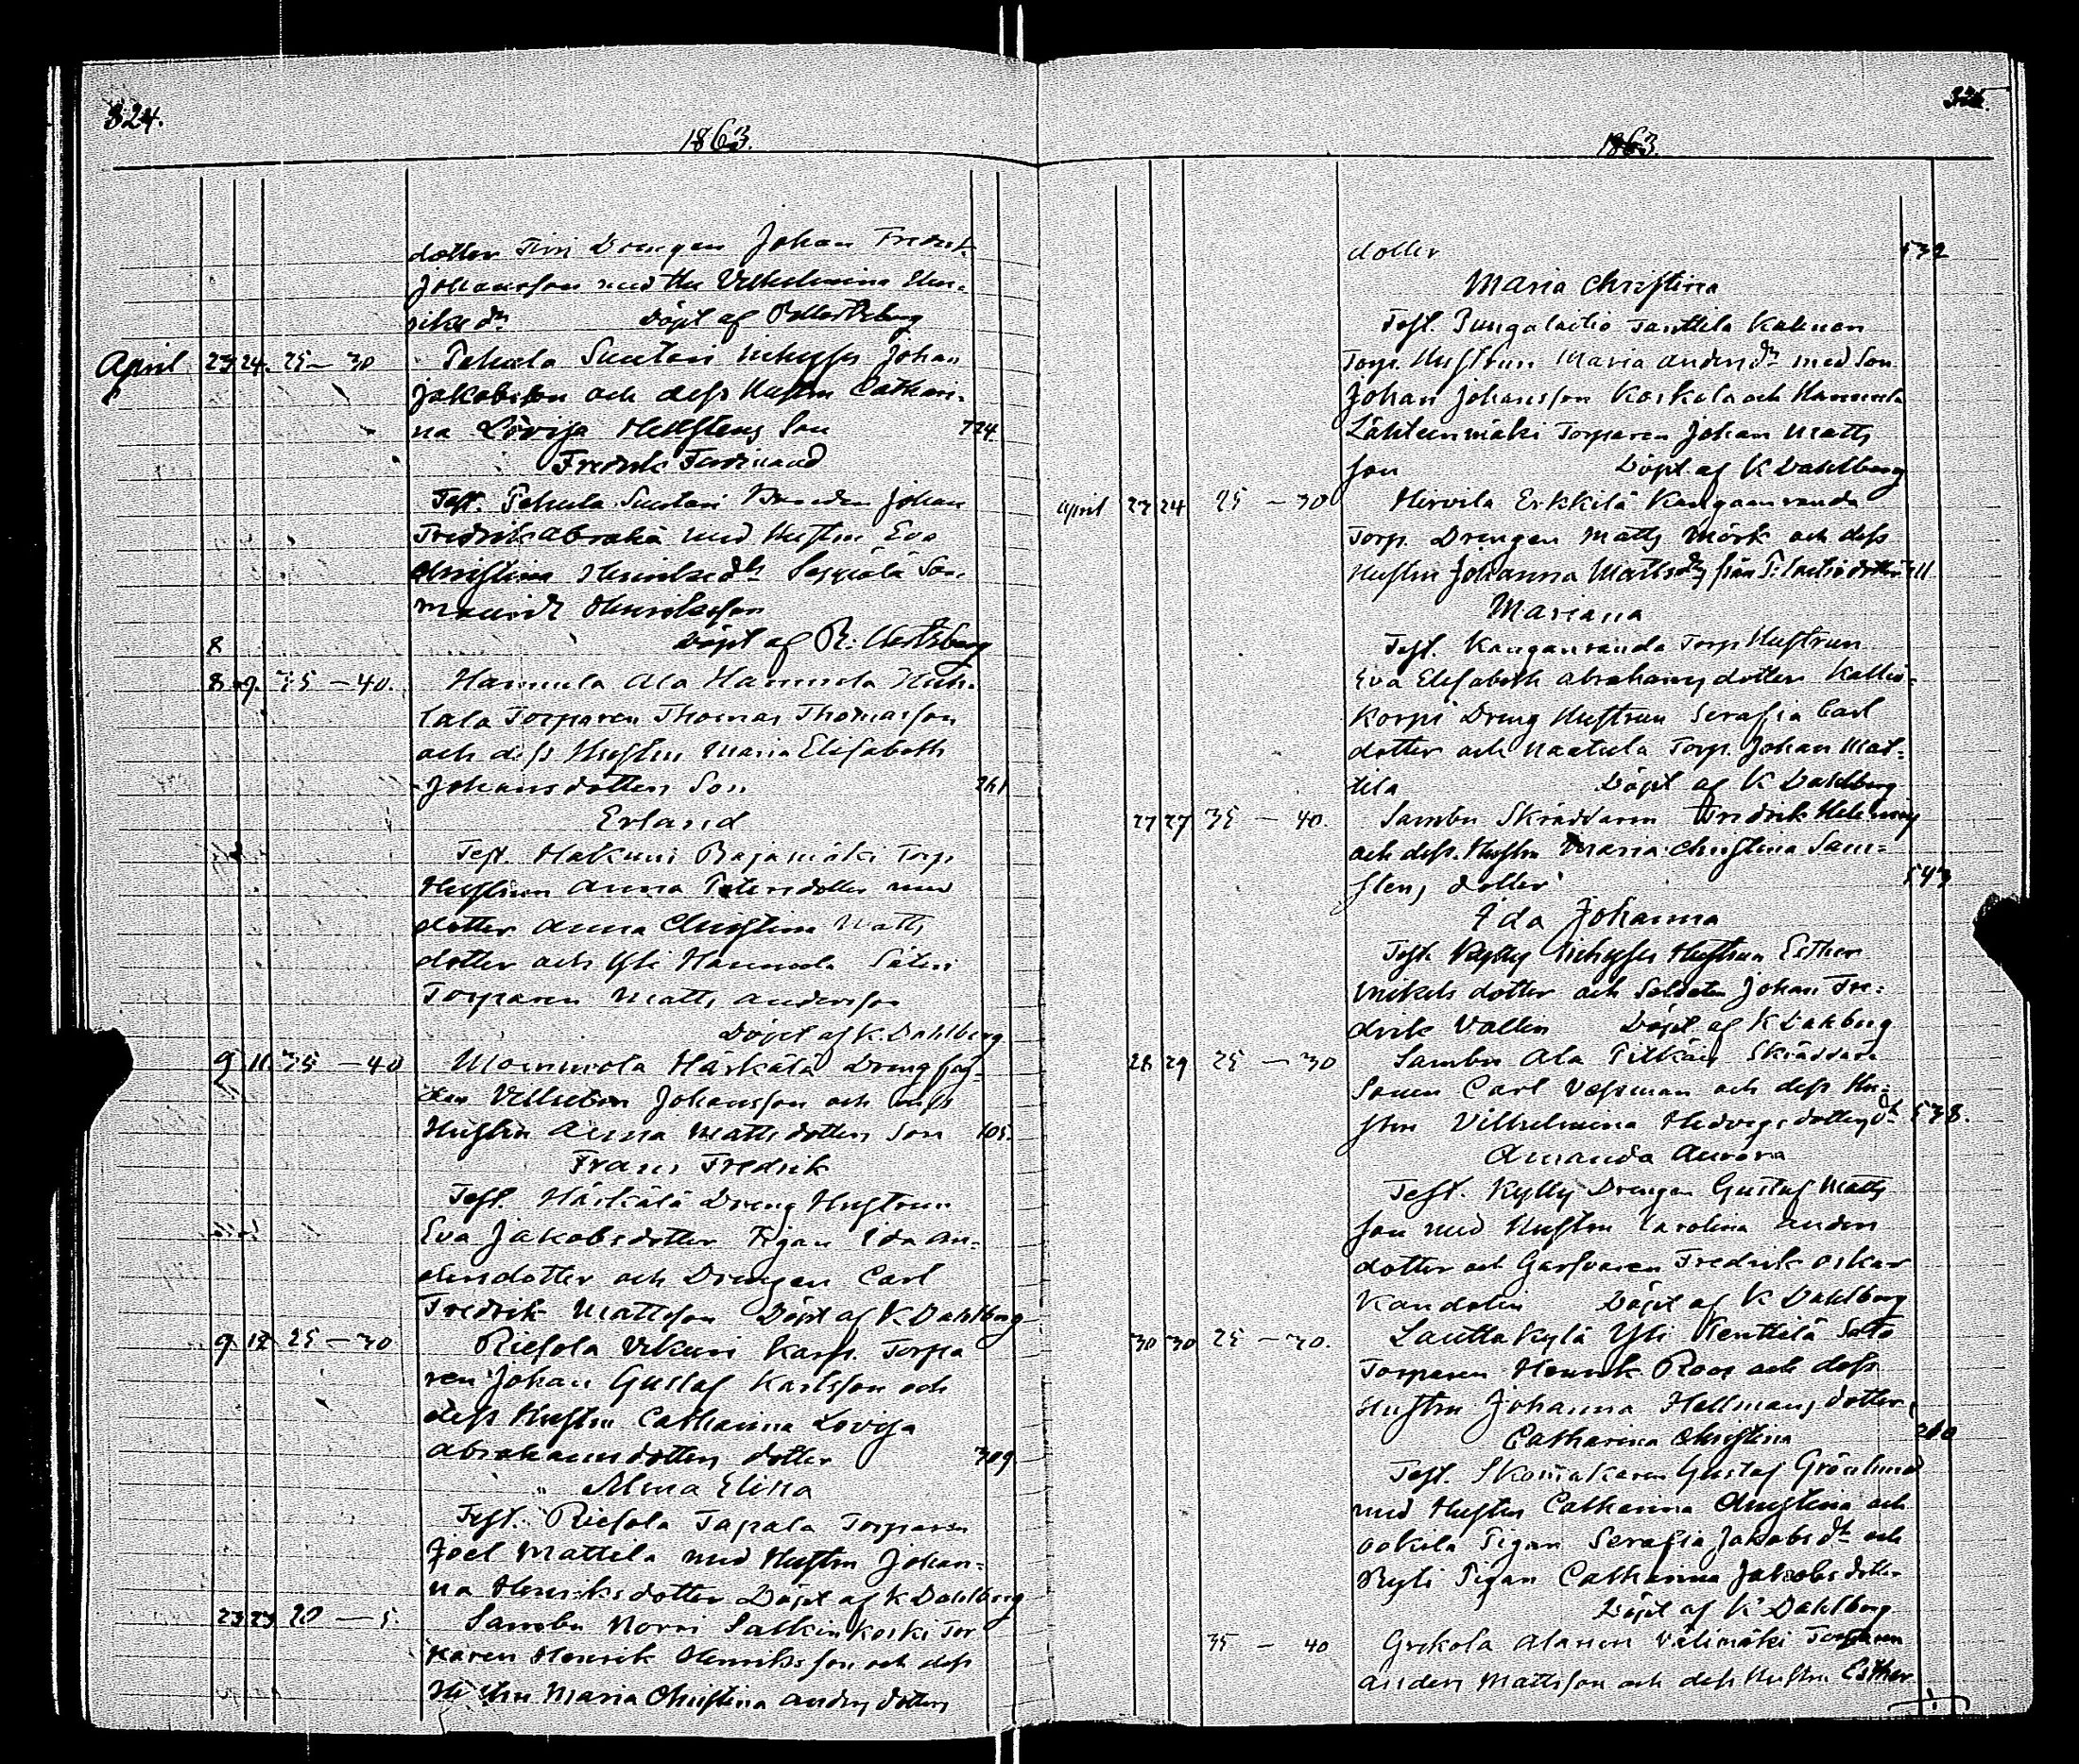 824.
1863.
dotter Tiri Drengen Johan Fredrik
Johansson med Hu Vilhelmina Hen-
riks dr Döpt af R Hertzberg
April 23 24. 25 — 30 Pehula Suutari Inhyses Johan
Jakobsson och dess Hustru Cathari-
na Lovisa Hellstens Son 724
Fredrik Ferdinand
Test. Pehula Suutari Bonden Johan
Fredrik Abraha med Hustru Eva
Christina Henriksdr Son
Mauritz Henriksson
8 Döpt af R. Hertzberg
8 9. 35 — 40. Hannula Ala Hannula Huh-
tala Torparen Thomas Thomasson
och dess Hustru Maria Elisabeth
Johansdotters Son 261
Erland
Test. Hakuni Rajamäki Torp
Hustrun Anna Petersdotter med
dotter Anna Christina Matts
dotter och Yli Hannula Säteri
Torparen Matts Andersson
Döpt af K. Dahlberg
9 11. 35 — 40 Mommola Härkälä Dreng
Vilhelm Johansson och dess
Hustru Anna Mattsdotters Son 105.
Frans Fredrik
Test. Härkälä Dreng Hustrun
Eva Jakobsdotter Pigan Ida An-
dersdotter och Drengen Carl
Fredrik Mattsson Döpt af K. Dahlberg
9 12 25 — 30 Riesola Ukuri Karp. Torpa
ren Johan Gustaf Karlsson och
dess Hustru Catharina Lovisa
Abrahamsdotters dotter 309
Alma Elina
Test. Riesola Tapala Torparen
Joel Mattela med Hustru Johan-
na Henriksdotter Döpt af K Dahlberg
23 23 20 — 5. Sambu Norri Sallinkoski Tor
paren Henrik Henriksson och dess
Hustru Maria Christina Anders dotters
325.
1863.
dotter 532
Maria Christina
Test. Pungalaitio Tanttila Kahman
Torp. Hustrun Maria Andersdr med Son
Johan Johansson Koskola och Hannula
Lähteenmäki Torparen Johan Matts
son Döpt af K Dahlberg
April 23 24 25 — 30 Hirvila Erkkilä Kangasvanda
Torp. Drengen Matts Mörk och dess
Hustru Johanna Mattsdrs från P. laitio dotter 711
Mariana
Test. Kanganvanda Torp Hustrun
Eva Elisabeth Abrahams dotter Kallio-
korpi Dreng Hustrun Serafia Carl
dotter och Naatula Torp. Johan Mat-
tila Döpt af K Dahlberg
27 27 35 — 40. Sambu Skräddaren Fredrik Helenius
och dess Hustru Maria Christina Sam-
stens dotter 543
Ida Johanna
Test. Kylly Inhyses Hustrun Esther
Mikels dotter och Soldaten Johan Fre-
drik Vallin Döpt af K Dahlberg
28 29 25 — 30 Sambu Ala Pitkäs Skräddare
Sonen Carl Vessman och dess Hu-
stru Vilhelmina Hedvigs dotters dr 538.
Amanda Aurora
Test. Kylly Drengen Gustaf Matts
son med Hustru Carolina Anders
dotter och Garfvaren Fredrik Oskar
Kandolin Döpt af K Dahlberg
30 30 25 — 30. Lauttakylä Yli Kenttilä Salo
Torparen Henrik Roos och dess
Hustru Johanna Hellmans dotter,
Catharina Christina 260
Test. Skomakaren Gustaf Grönlund
med Hustru Catharina Christina och
ookila Pigan Serafia Jakobsdr och
Ryti Pigan Catharina Jakobsdotter
Döpt af K Dahlberg
35 — 40 Grekola Alanen Välimäki Torparen
Anders Mattsson och dess Hustru Esther